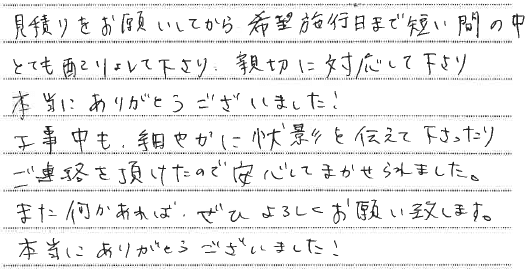 見積りをお願いしてから希望施行日まで短い間の中
とても配りょして下さり、親切に対応して下さり
本当にありがとうございました！
工事中も、細やかに状影を伝えて下さったり
ご連絡を頂けたので安心してまかせられました。
また何かあれば、ぜひよろしくお願い致します。
本当にありがとうございました！